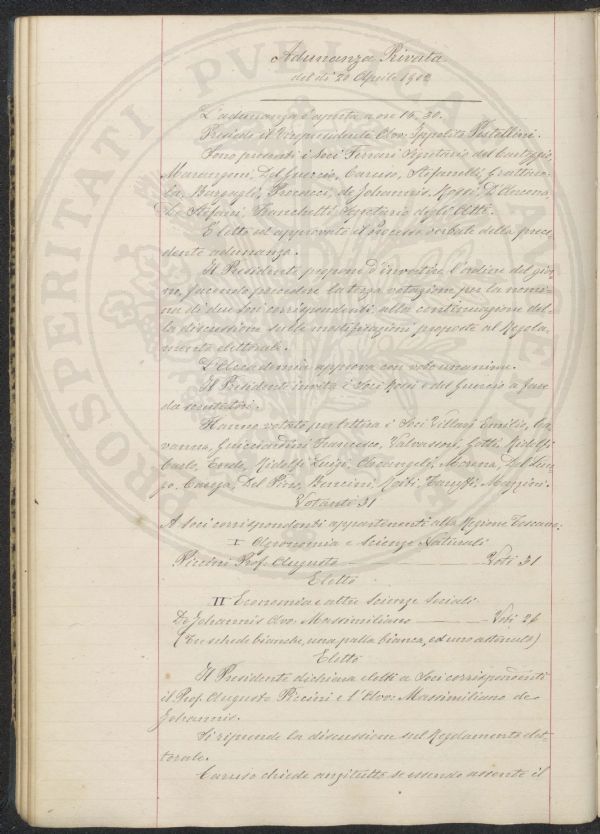 Adunanza Privata
del dì 20 Aprile 1902
L'adunanza è aperta a ore 16,30.
Presiede il Vicepresidente Avv. Ippolito Pestellini.
Sono presenti i Soci Ferrari Segretario del Carteggio,
Marangoni, Del Guercio, Caruso, Stefanelli, Grattaro-
la, Bargagli, Procacci, de Johannis, Rossi, D'Ancona,
De Stefani, Franchetti, segretario degli Atti.
È letto ed approvato il processo verbale della prece-
dente adunanza.
Il Presidente propone d'invertire l'ordine del gior-
no, facendo precedere la terza votazione per la nomi-
na di due Soci corrispondenti, alla continuazione del-
la discussione sulle modificazioni proposte al Regola-
mento elettorale.
L'Accademia approva con voto unanime.
Il Presidente invita i Soci Rossi e del Guercio a fare
da scrutatori.
Hanno votato per lettera i Soci Villari Emilio, Ca-
vanna, Guicciardini Francesco, Valvassori, Gatti, Ridolfi
Carlo, Ridolfi Luigi, Arcangeli, Morena, Del Lun-
go, Carega, Del Pero, Bencini, Roiti, Mazzini.
Votanti 31
A Soci corrispondenti appartenenti alla Regione Toscana:
I Agronomia e Scienze Naturali
Piccini Prof. Augusto — Voti 31
Eletto
II Economia e altre Scienze Sociali
De Johannis Avv. Massimiliano — Voti 26
(Tre schede bianche, una palla bianca, ed uno astenuto)
Eletto
Il Presidente dichiara eletti a Soci corrispondenti
il Prof. Augusto Piccini e l'Avv. Massimiliano de
Johannis.
Si riprende la discussione sul Regolamento elet-
torale.
Caruso chiede anzitutto se essendo assente il
PROSPERITATI PVBLICAE AVGENDAE